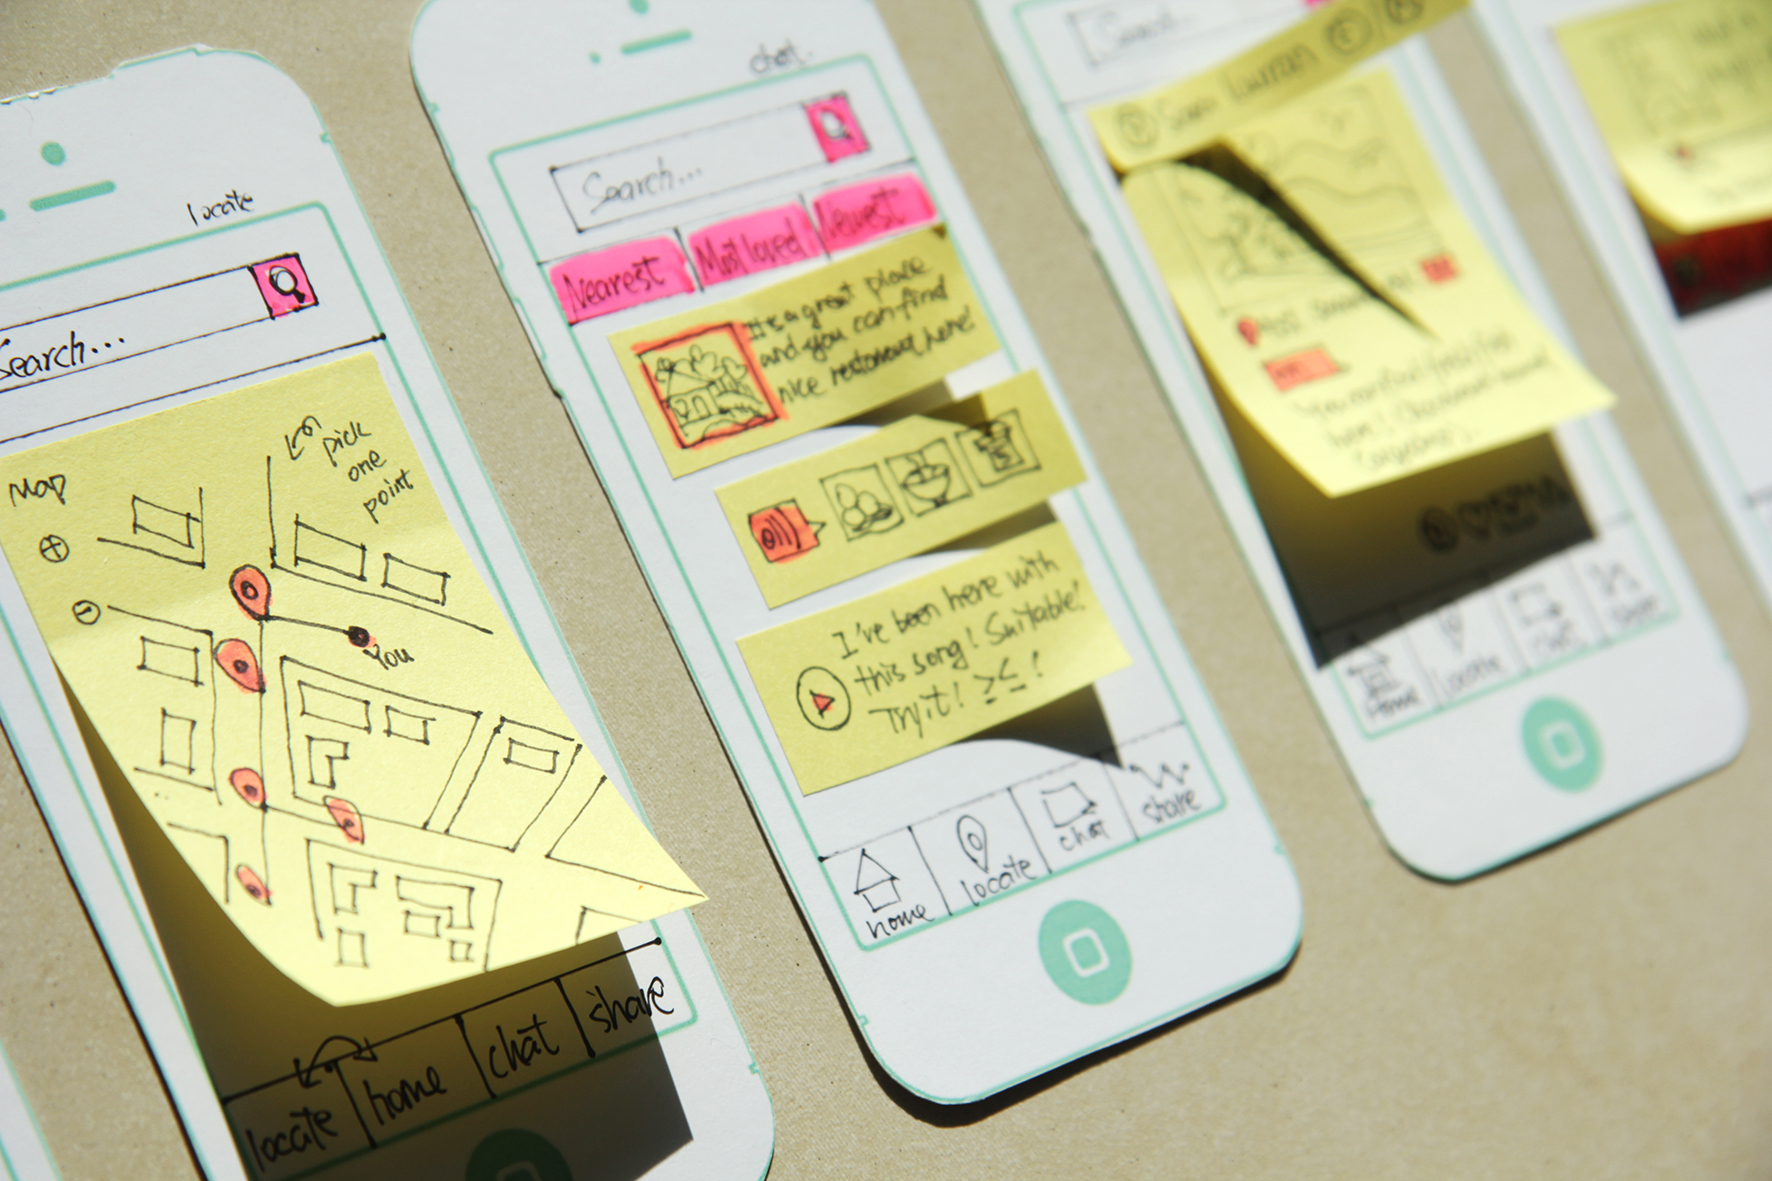 locate
Search...
Map
pick
one
point
You
locate
home
chat
share
chat.
Search...
Nearest
Most loved
Newest
It's a great place
and you can find
nice restaurant here!
I've been here with
this song! Suitable!
Try it! ≥≤!
home
locate
chat
share
Search...
Home
locate
chat
share